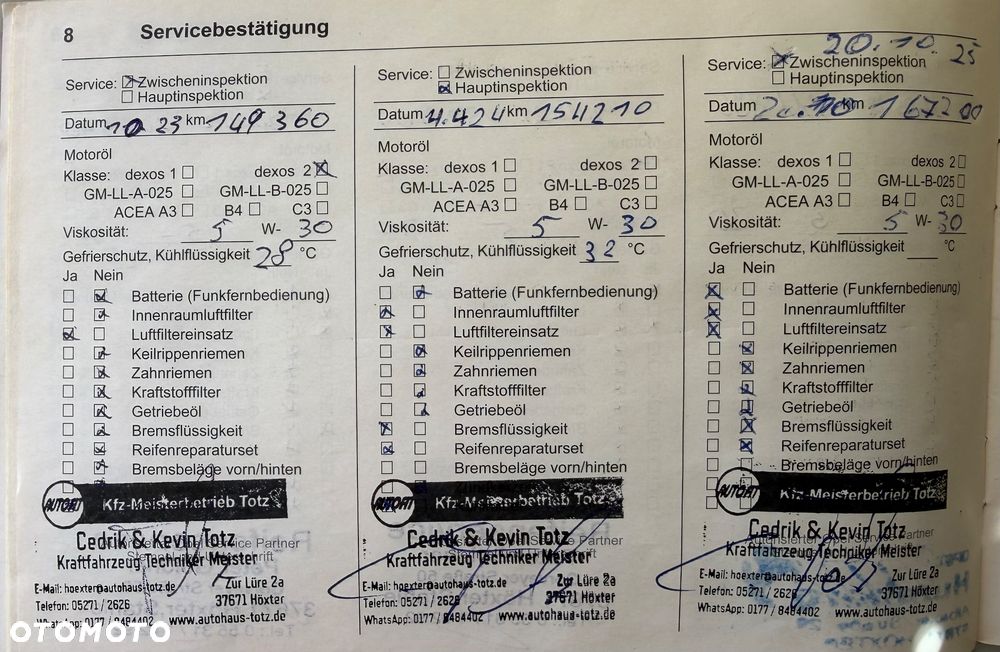 8 Servicebestätigung
Service: Zwischeninspektion
Hauptinspektion
Datum 10 23 km 149 360
Motoröl
Klasse: dexos 1 dexos 2
GM-LL-A-025 GM-LL-B-025
ACEA A3 B4 C3
Viskosität: 5 W- 30
Gefrierschutz, Kühlflüssigkeit 28 °C
Ja Nein
Batterie (Funkfernbedienung)
Innenraumluftfilter
Luftfiltereinsatz
Keilrippenriemen
Zahnriemen
Kraftstofffilter
Getriebeöl
Bremsflüssigkeit
Reifenreparaturset
Bremsbeläge vorn/hinten
AUTOFIT Kfz-Meisterbetrieb Totz
Cedrik & Kevin Totz
Service Partner
Kraftfahrzeug Techniker Meister
E-Mail: hoexter@autohaus-totz.de Zur Lüre 2a
Telefon: 05271 / 2626 37671 Höxter
WhatsApp: 0177 / 8484402 www.autohaus-totz.de
Service: Zwischeninspektion
Hauptinspektion
Datum 4.4.24 km 154210
Motoröl
Klasse: dexos 1 dexos 2
GM-LL-A-025 GM-LL-B-025
ACEA A3 B4 C3
Viskosität: 5 W- 30
Gefrierschutz, Kühlflüssigkeit 32 °C
Ja Nein
Batterie (Funkfernbedienung)
Innenraumluftfilter
Luftfiltereinsatz
Keilrippenriemen
Zahnriemen
Kraftstofffilter
Getriebeöl
Bremsflüssigkeit
Reifenreparaturset
Bremsbeläge vorn/hinten
AUTOFIT Kfz-Meisterbetrieb Totz
Cedrik & Kevin Totz
Service Partner
Kraftfahrzeug Techniker Meister
E-Mail: hoexter@autohaus-totz.de Zur Lüre 2a
Telefon: 05271 / 2626 37671 Höxter
WhatsApp: 0177 / 8484402 www.autohaus-totz.de
20.10.25
Service: Zwischeninspektion
Hauptinspektion
Datum km 167200
Motoröl
Klasse: dexos 1 dexos 2
GM-LL-A-025 GM-LL-B-025
ACEA A3 B4 C3
Viskosität: 5 W- 30
Gefrierschutz, Kühlflüssigkeit °C
Ja Nein
Batterie (Funkfernbedienung)
Innenraumluftfilter
Luftfiltereinsatz
Keilrippenriemen
Zahnriemen
Kraftstofffilter
Getriebeöl
Bremsflüssigkeit
Reifenreparaturset
Bremsbeläge vorn/hinten
AUTOFIT Kfz-Meisterbetrieb Totz
Cedrik & Kevin Totz
Service Partner
Kraftfahrzeug Techniker Meister
E-Mail: hoexter@autohaus-totz.de Zur Lüre 2a
Telefon: 05271 / 2626 37671 Höxter
WhatsApp: 0177 / 8484402 www.autohaus-totz.de
OTOMOTO